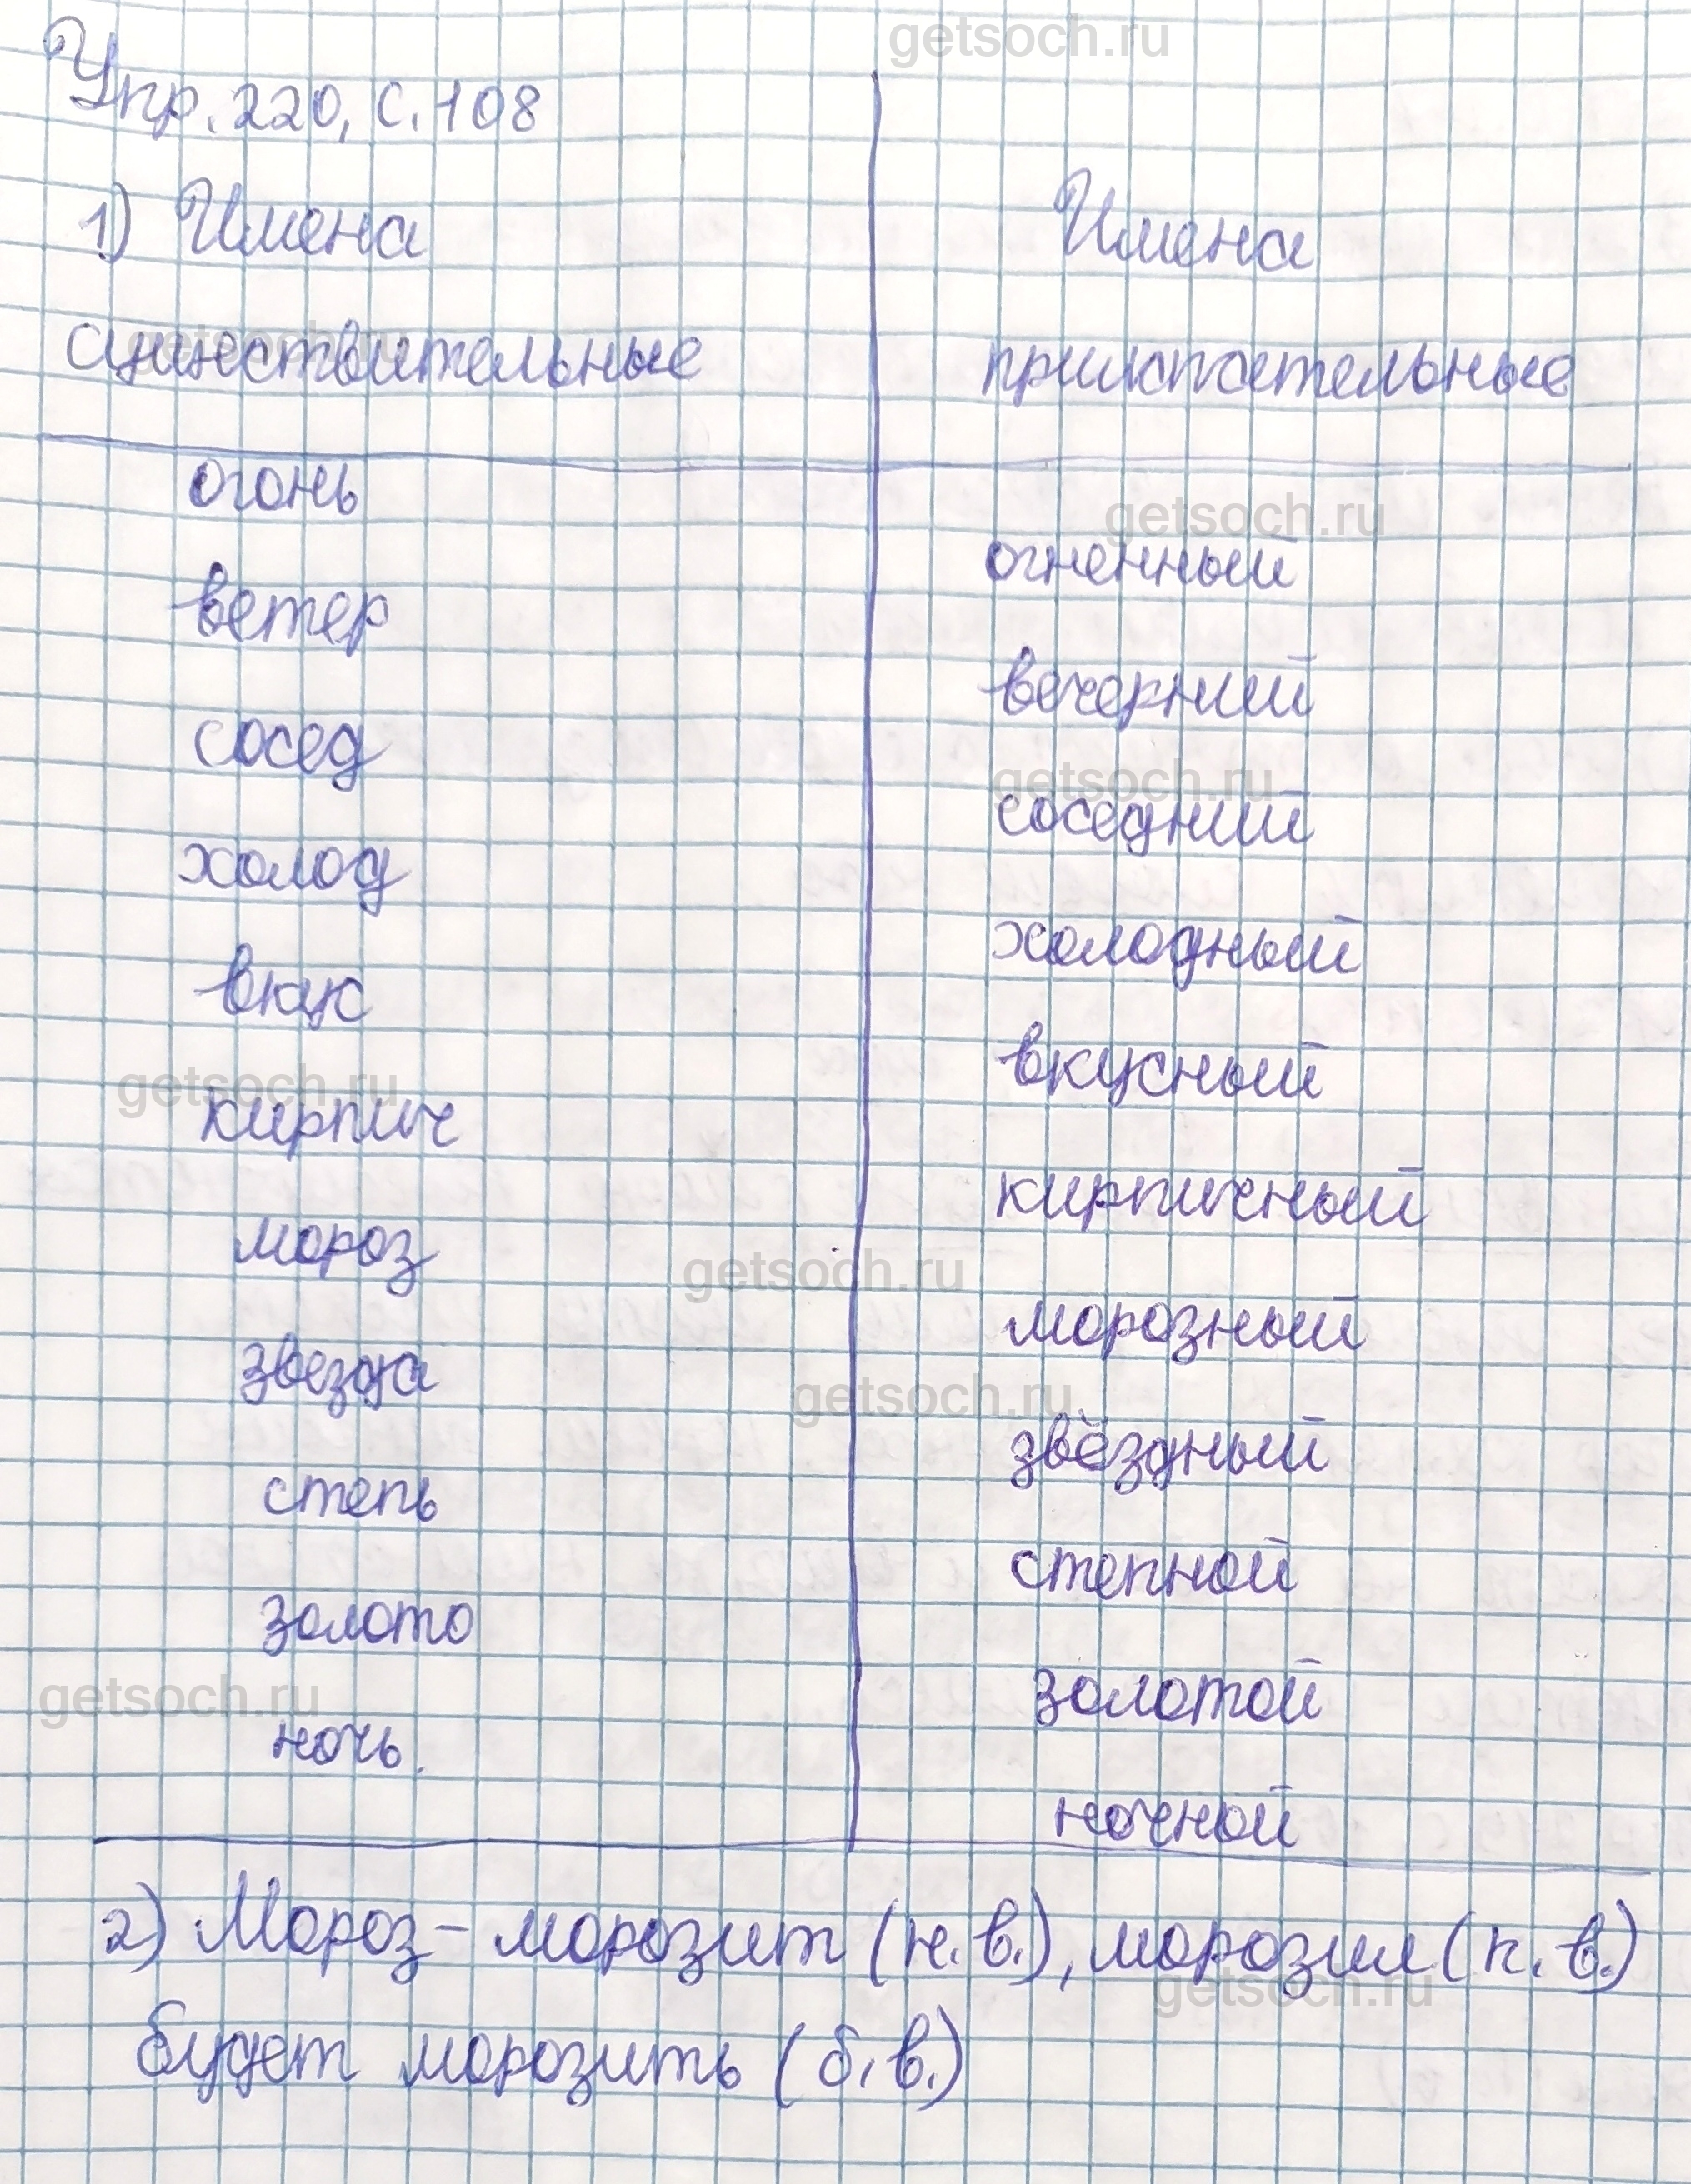 getsoch.ru
Упр. 220, с. 108
1) Имена
Имена
существительные
getsoch.ru
прилагательные
огонь
getsoch.ru
огненный
ветер
вечерний
сосед
getsoch.ru
соседний
холод
холодный
вкус
вкусный
getsoch.ru
кирпич
кирпичный
мороз
getsoch.ru
морозный
звезда
getsoch.ru
звёздный
степь
степной
золото
getsoch.ru
золотой
ночь.
ночной
2) Мороз – морозит (н. в.), морозил (п. в.)
getsoch.ru
будет морозить (б. в.)